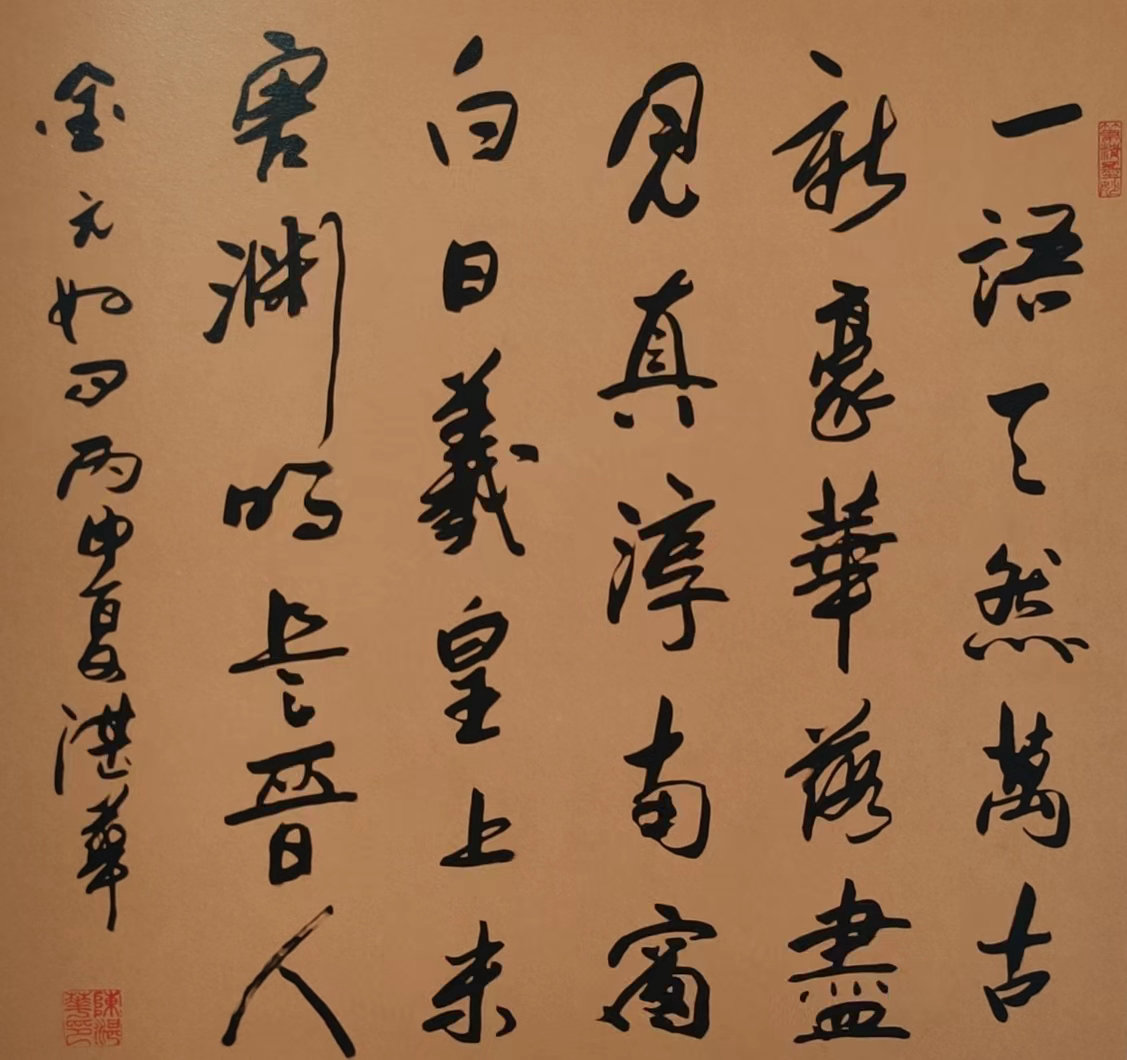 一語天然萬古
新豪華落盡
見真淳南窗
白日羲皇上未
害淵明是晉人
金元好問丙申夏湛華
陳湛華印